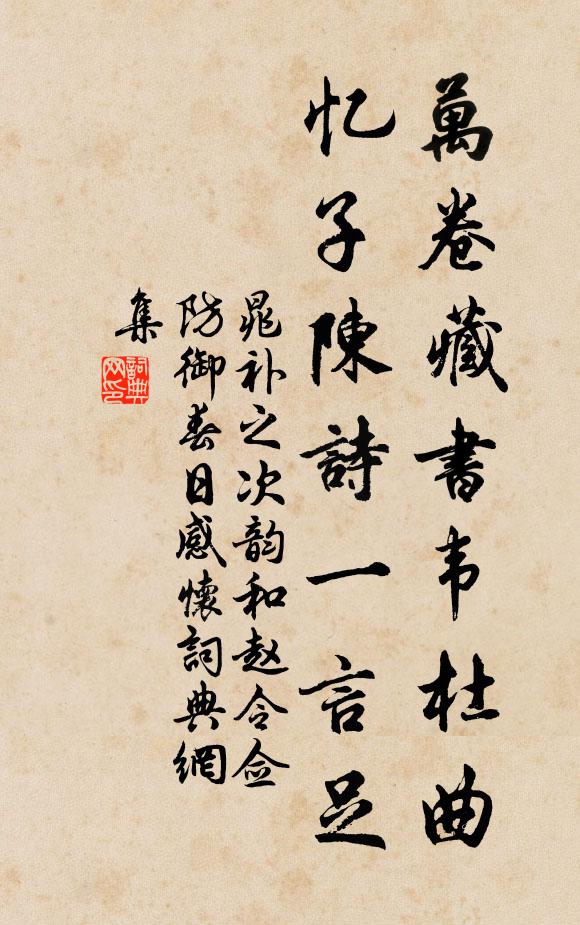 萬卷藏書韦杜曲
忆子陳詩一言足
晁补之次韵和赵令佥
防御春日感懷詞典網
集
詞典
网印